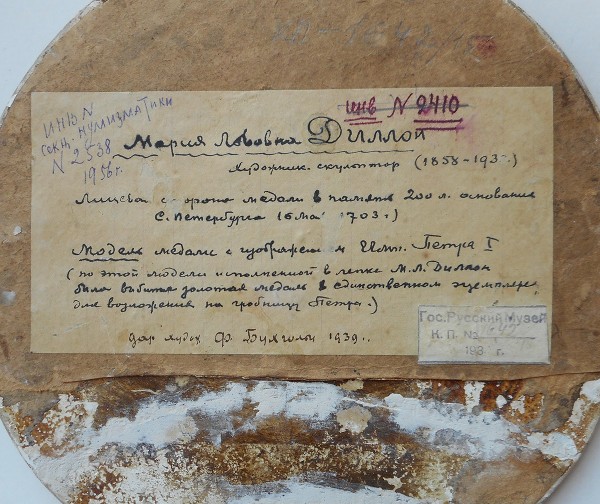 инв N 2410
ИНВ N
секц. нумизматики
N 2538
1956г.
Мария Львовна Диллон
Художник скульптор (1858-193 .)
Лицевая сторона медали в память 200 л. основания
С. Петербурга 16 мая 1703 г.)
Модель медали с изображением Имп. Петра I
(по этой модели исполненной в лепке М.Л. Диллон
была выбита золотая медаль в единственном экземпляре
для возложения на гробницу Петра.)
дар худож Ф. Бухгольц 1939 г.
Гос. Русский Музей
К. П. №
193 г.